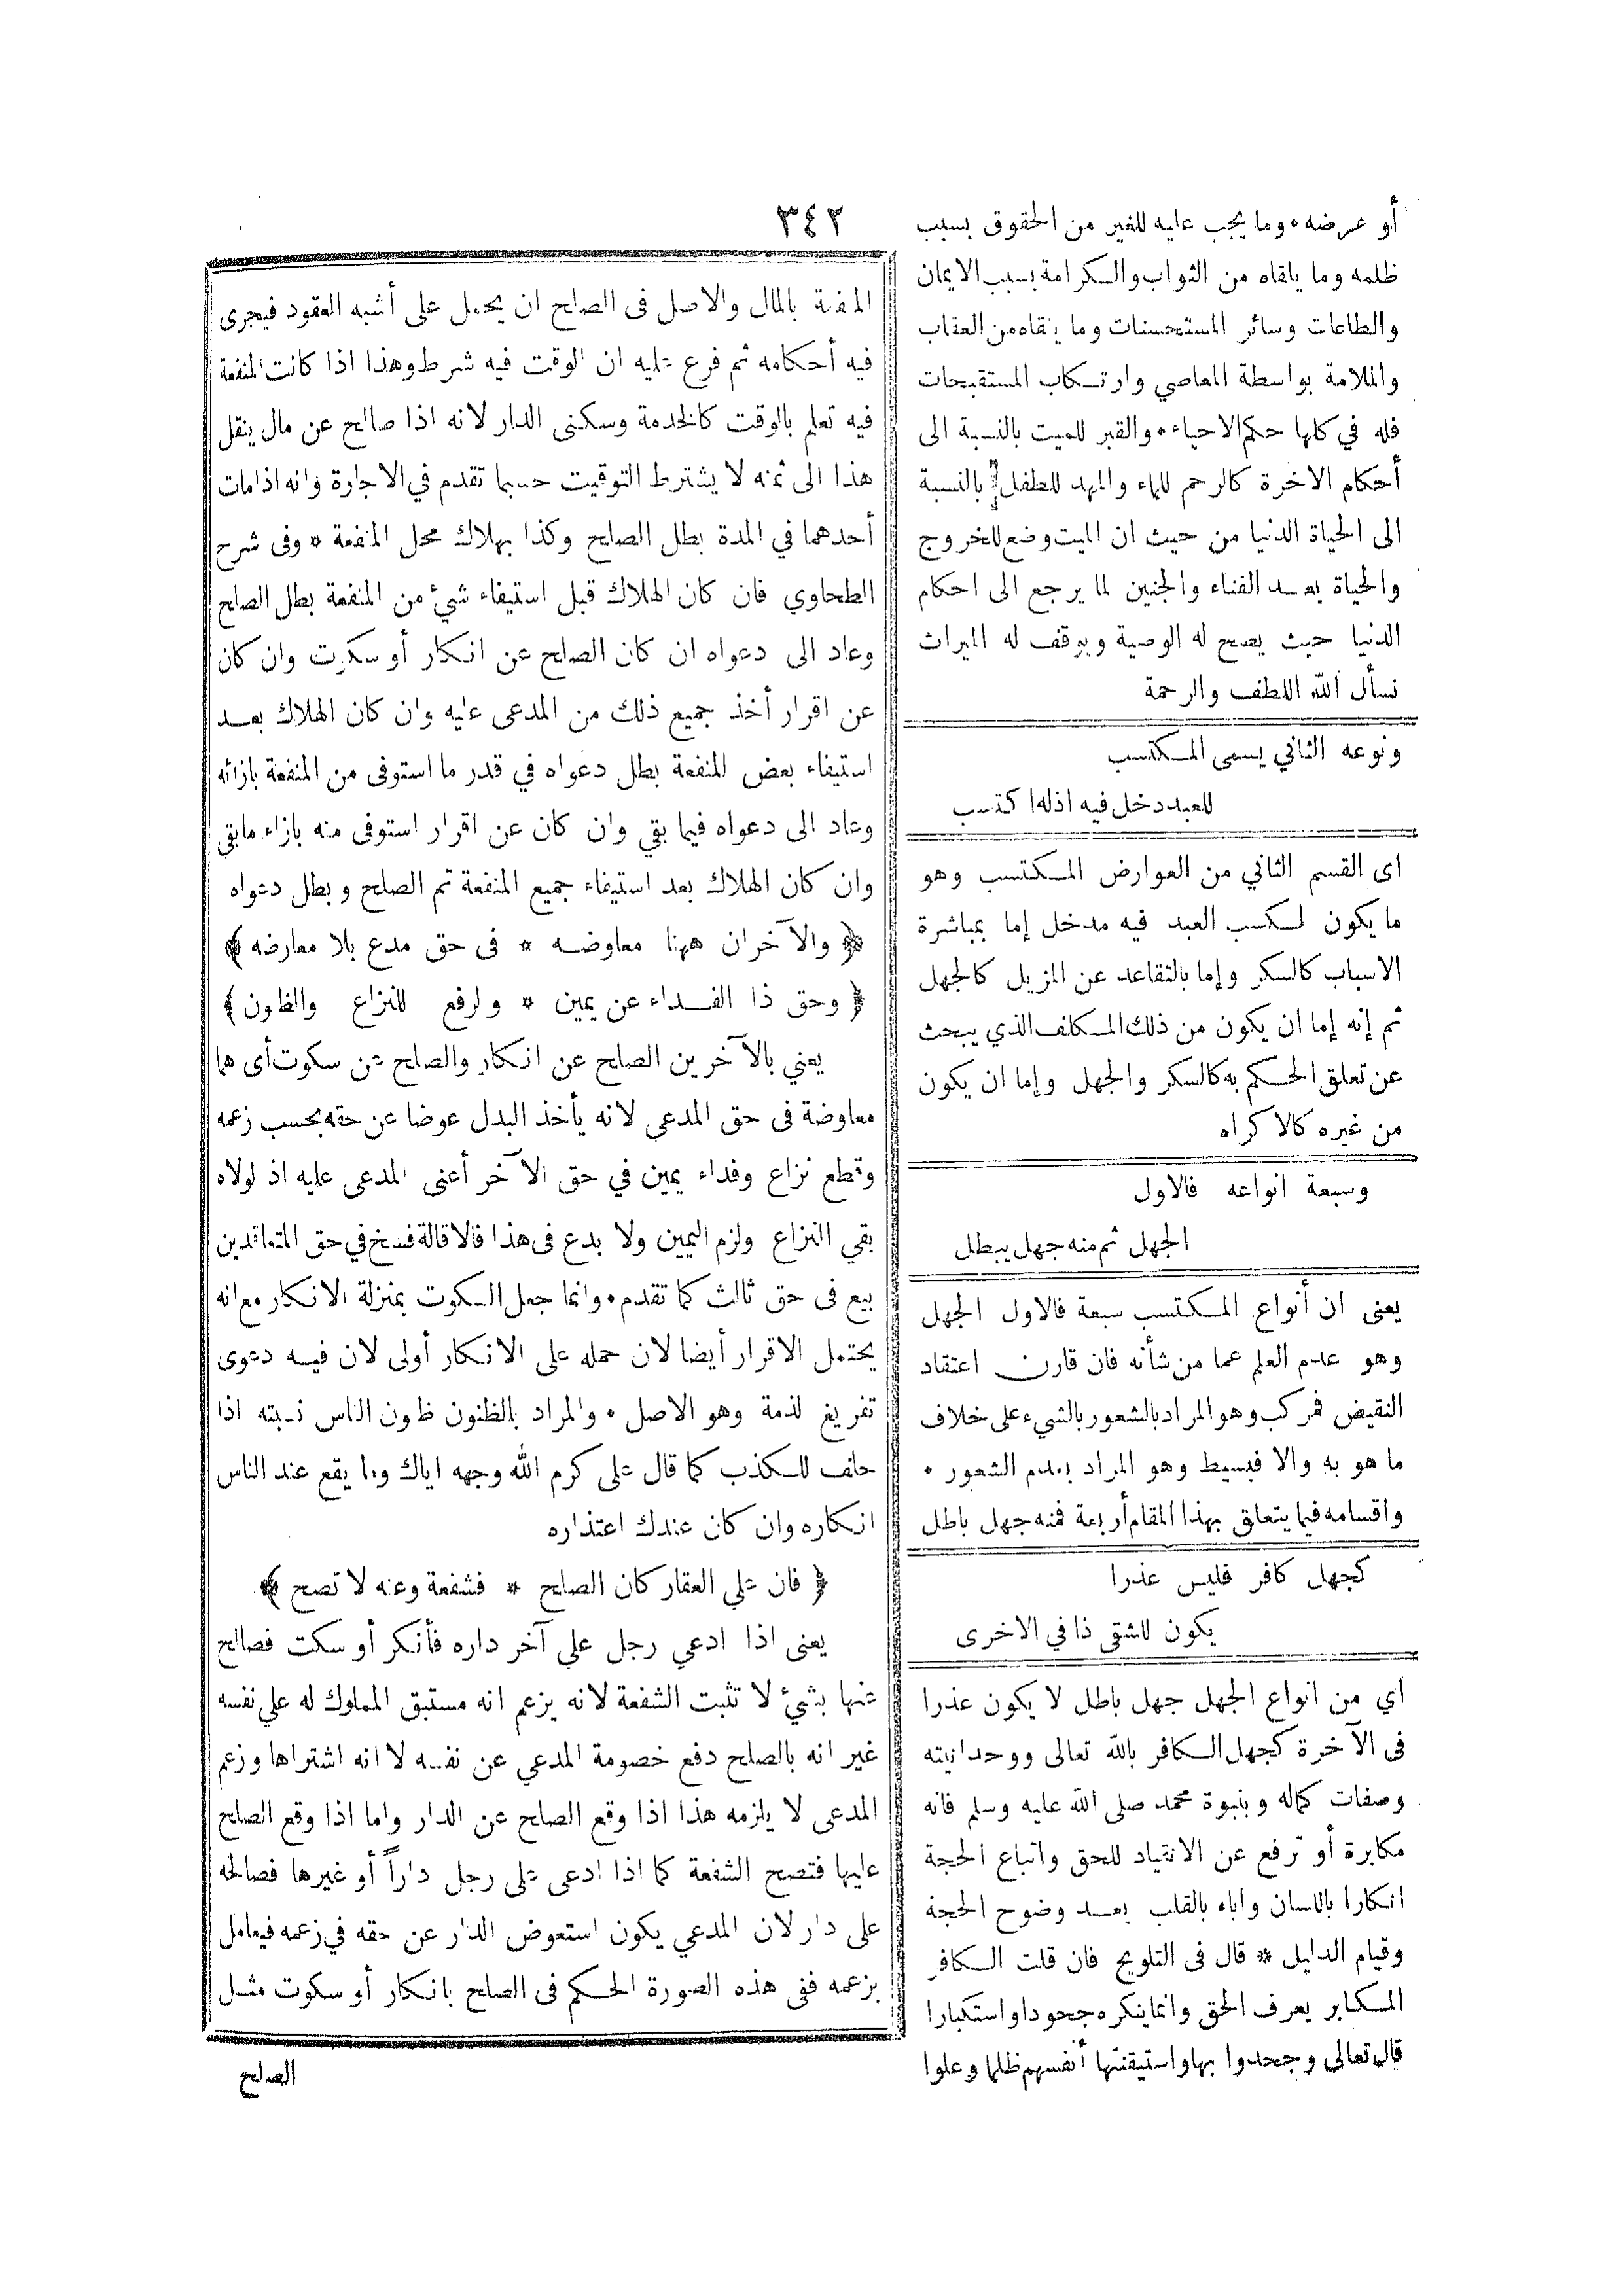 ٣٤٢
أو عرضه ٠ وما يجب عليه للغير من الحقوق بسبب
ظلمه وما يلقاه من الثواب والكرامة بسبب الايمان
والطاعات وسائر المستحسنات وما يلقاه من العقاب
والملامة بواسطة المعاصي وارتكاب المستقبحات
فله في كلها حكم الاحياء ٠ والقبر للميت بالنسبة الى
أحكام الاخرة كالرحم للماء والمهد للطفل بالنسبة
الى الحياة الدنيا من حيث ان الميت وضع للخروج
والحياة بعد الفناء والجنين لما يرجع الى احكام
الدنيا حيث يصح له الوصية ويوقف له الميراث
نسأل الله اللطف والرحمة
ونوعه الثاني يسمى المكتسب
للعبد دخل فيه اذ له اكتسب
اى القسم الثاني من العوارض المكتسب وهو
ما يكون لكسب العبد فيه مدخل إما بمباشرة
الاسباب كالسكر وإما بالتقاعد عن المزيل كالجهل
ثم إنه إما ان يكون من ذلك المكلف الذي يبحث
عن تعلق الحكم به كالسكر والجهل وإما ان يكون
من غيره كالاكراه
وسبعة انواعه فالاول
الجهل ثم منه جهل يبطل
يعنى ان أنواع المكتسب سبعة فالاول الجهل
وهو عدم العلم عما من شأنه فان قارن اعتقاد
النقيض فمركب وهو المراد بالشعور بالشيء على خلاف
ما هو به والا فبسيط وهو المراد بعدم الشعور ٠
واقسامه فيما يتعلق بهذا المقام أربعة فمنه جهل باطل
كجهل كافر فليس عذرا
يكون للشقى ذا في الاخرى
اي من انواع الجهل جهل باطل لا يكون عذرا
فى الآخرة كجهل الكافر بالله تعالى ووحدانيته
وصفات كماله وبنبوة محمد صلى الله عليه وسلم فانه
مكابرة أو ترفع عن الانقياد للحق واتباع الحجة
انكارا باللسان واباء بالقلب بعد وضوح الحجة
وقيام الدليل * قال فى التلويح فان قلت الكافر
المكابر يعرف الحق وانما ينكره جحودا واستكبارا
قال تعالى وجحدوا بها واستيقنتها أنفسهم ظلما وعلوا
المنفعة بالمال والاصل فى الصلح ان يحمل على أشبه العقود فيجرى
فيه أحكامه ثم فرع عليه ان الوقت فيه شرط وهذا اذا كانت المنفعة
فيه تعلم بالوقت كالخدمة وسكنى الدار لانه اذا صالح عن مال ينقل
هذا الى ثمنه لا يشترط التوقيت حسبما تقدم في الاجارة وانه اذا مات
أحدهما في المدة بطل الصلح وكذا بهلاك محل المنفعة * وفى شرح
الطحاوي فان كان الهلاك قبل استيفاء شيء من المنفعة بطل الصلح
وعاد الى دعواه ان كان الصلح عن انكار أو سكوت وان كان
عن اقرار أخذ جميع ذلك من المدعى عليه وان كان الهلاك بعد
استيفاء بعض المنفعة بطل دعواه في قدر ما استوفى من المنفعة بازائه
وعاد الى دعواه فيما بقي وان كان عن اقرار استوفى منه بازاء ما بقى
وان كان الهلاك بعد استيفاء جميع المنفعة تم الصلح وبطل دعواه
﴿ والآخران ههنا معاوضه * فى حق مدع بلا معارضه ﴾
﴿ وحق ذا الفداء عن يمين * ولرفع للنزاع والظنون ﴾
يعني بالآخرين الصلح عن انكار والصلح عن سكوت أى هما
معاوضة فى حق المدعى لانه يأخذ البدل عوضا عن حقه بحسب زعمه
وقطع نزاع وفداء يمين في حق الآخر أعنى المدعى عليه اذ لولاه
بقي النزاع ولزم اليمين ولا بدع فى هذا فالاقالة فسخ في حق المتعاقدين
بيع فى حق ثالث كما تقدم ٠ وانما جعل السكوت بمنزلة الانكار مع انه
يحتمل الاقرار أيضا لان حمله على الانكار أولى لان فيه دعوى
تفريغ لذمة وهو الاصل ٠ والمراد بالظنون ظنون الناس نسبته اذا
حلف للكذب كما قال على كرم الله وجهه اياك وما يقع عند الناس
انكاره وان كان عندك اعتذاره
﴿ فان على العقار كان الصلح * فشفعة وعنه لا تصح ﴾
يعنى اذا ادعي رجل على آخر داره فأنكر أو سكت فصالح
عنها بشيء لا تثبت الشفعة لانه يزعم انه مستبق المملوك له على نفسه
غير انه بالصلح دفع خصومة المدعي عن نفسه لا انه اشتراها وزعم
المدعى لا يلزمه هذا اذا وقع الصلح عن الدار واما اذا وقع الصلح
عليها فتصح الشفعة كما اذا ادعى على رجل داراً أو غيرها فصالحه
على دار لان المدعي يكون استعوض الدار عن حقه في زعمه فيعامل
بزعمه ففى هذه الصورة الحكم فى الصلح بانكار أو سكوت مثل
الصلح